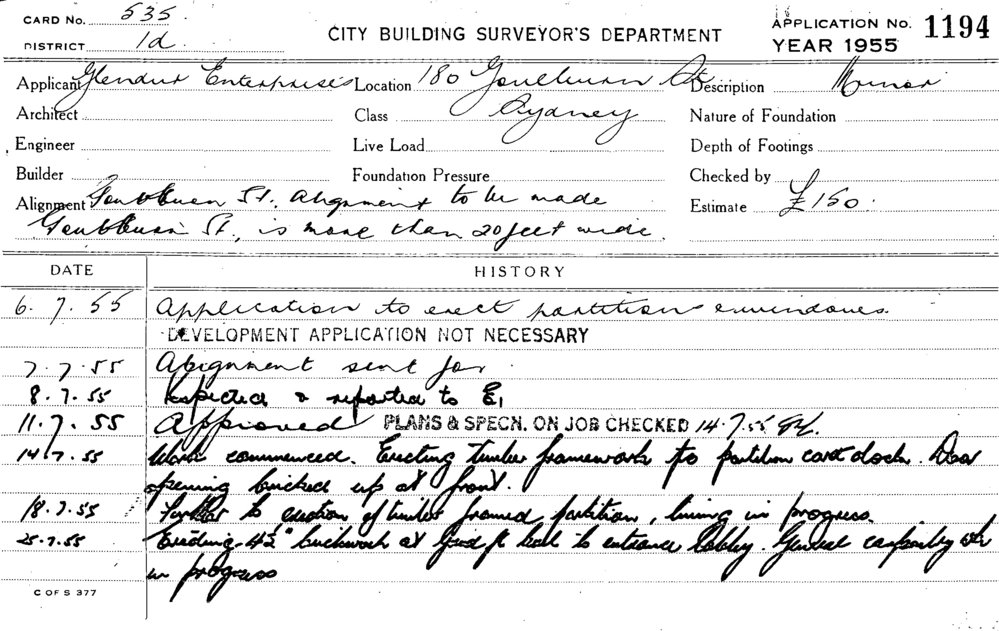 CARD No. 535.
DISTRICT 1d.
CITY BUILDING SURVEYOR'S DEPARTMENT
APPLICATION No. 1194
YEAR 1955
Applicant Glendur Enterprises Location 180 Goulburn St Description Minor
Architect Class Sydney Nature of Foundation
Engineer Live Load Depth of Footings
Builder Foundation Pressure Checked by
Alignment Goulburn St., Alignment to be made Estimate £150.
Goulburn St., is more than 20 feet wide.
DATE HISTORY
6.7.55 Application to erect partition & windows.
DEVELOPMENT APPLICATION NOT NECESSARY
7.7.55 Alignment sent for.
8.7.55 Inspected & reported to E,
11.7.55 Approved PLANS & SPECN. ON JOB CHECKED 14.7.55
14.7.55 Work commenced. Erecting timber framework to partition cart dock. Door
opening bricked up at front.
18.7.55 Further to erection of timber framed partition, lining in progress.
25.7.55 Erecting 4½" brickwork at Grd fl level to entrance lobby. General carpentry
in progress
C OF S 377